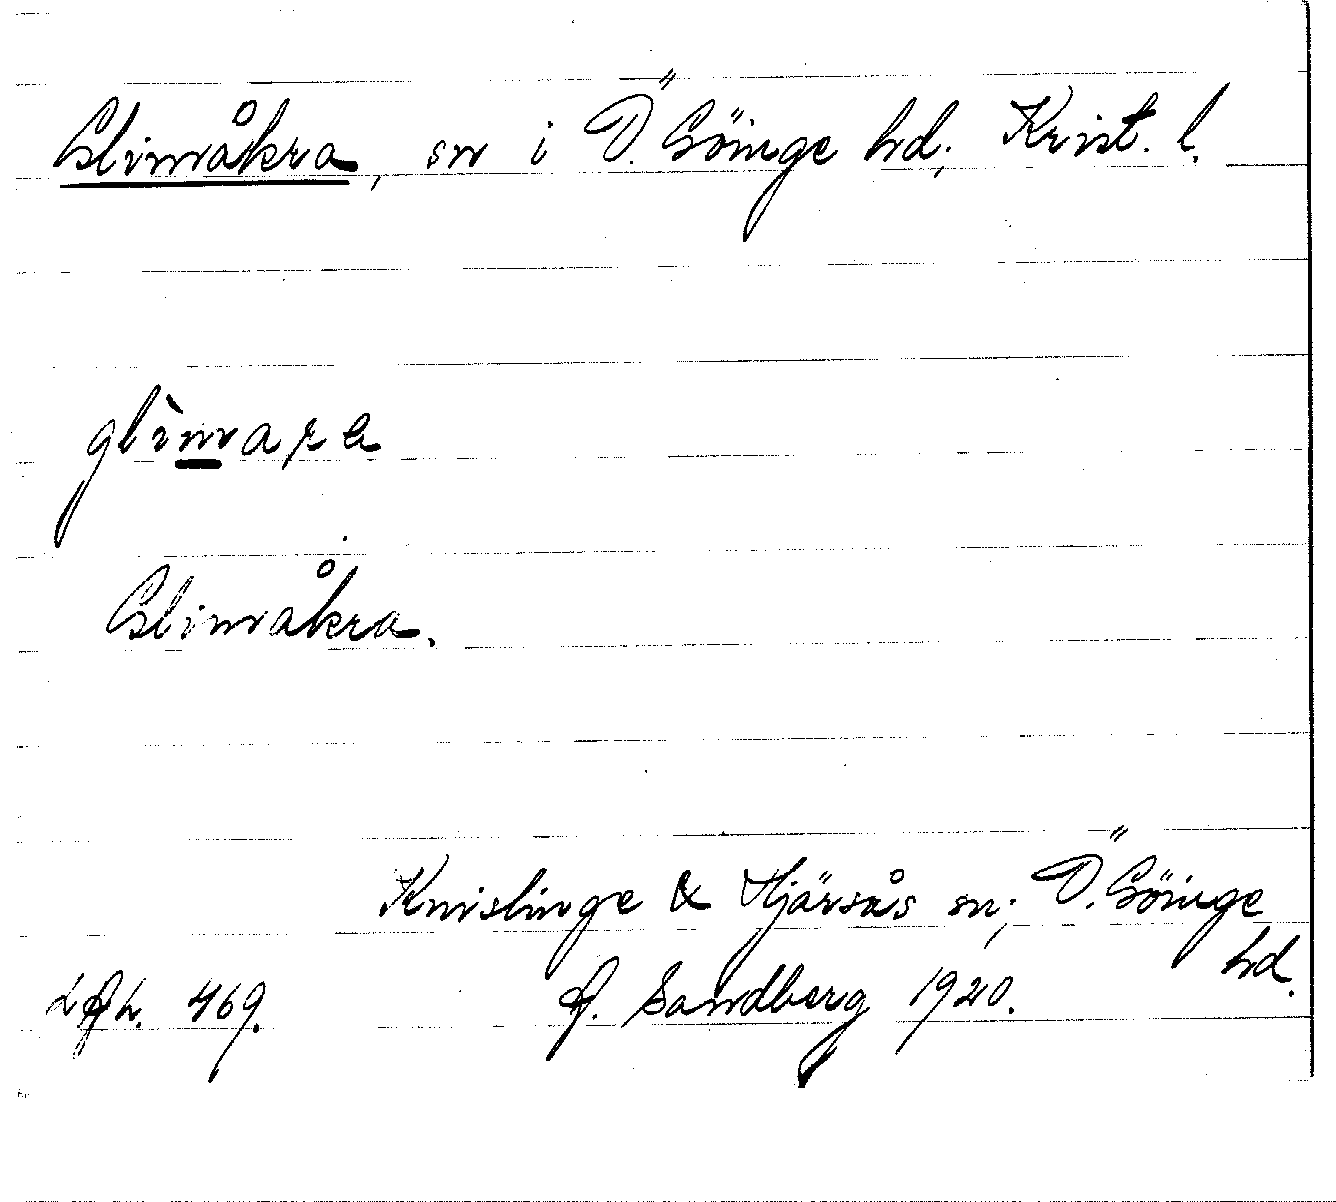 Glimåkra, sn i Ö. Göinge hd, Krist. l.
glìmara
Glimåkra.
Knislinge & Hjärsås sn, Ö. Göinge
hd.
469. Sandberg 1920.